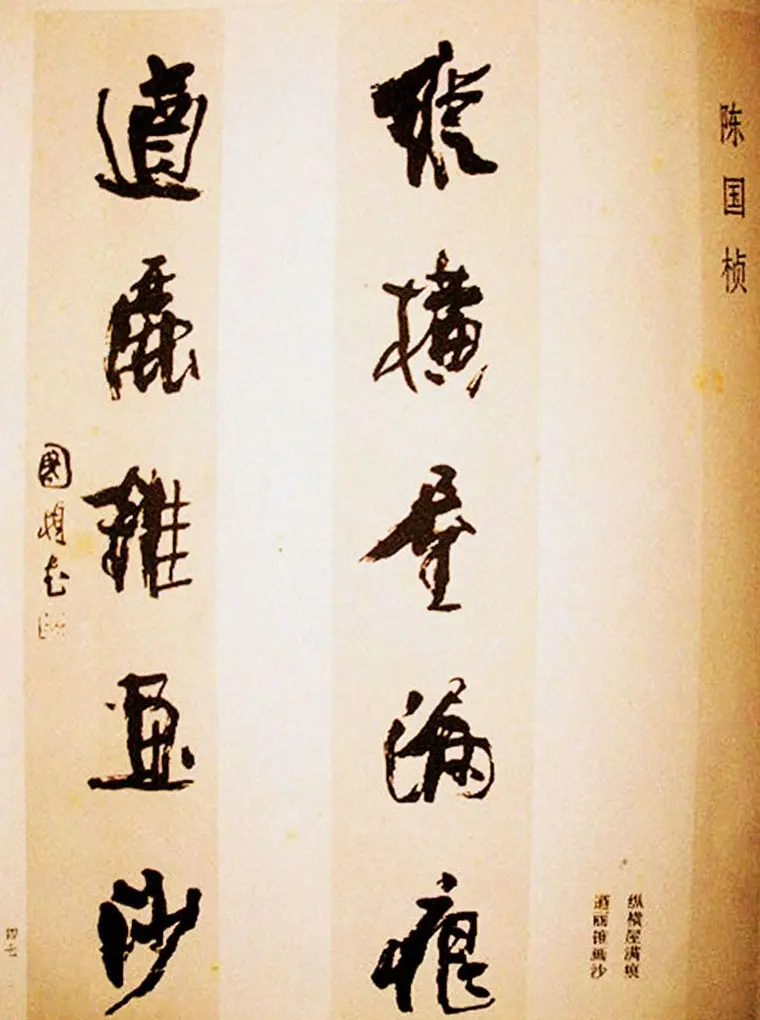 陈国桢
縱橫屋漏痕
遒麗錐畫沙
國楨書
纵横屋满痕
遒丽锥画沙
四七